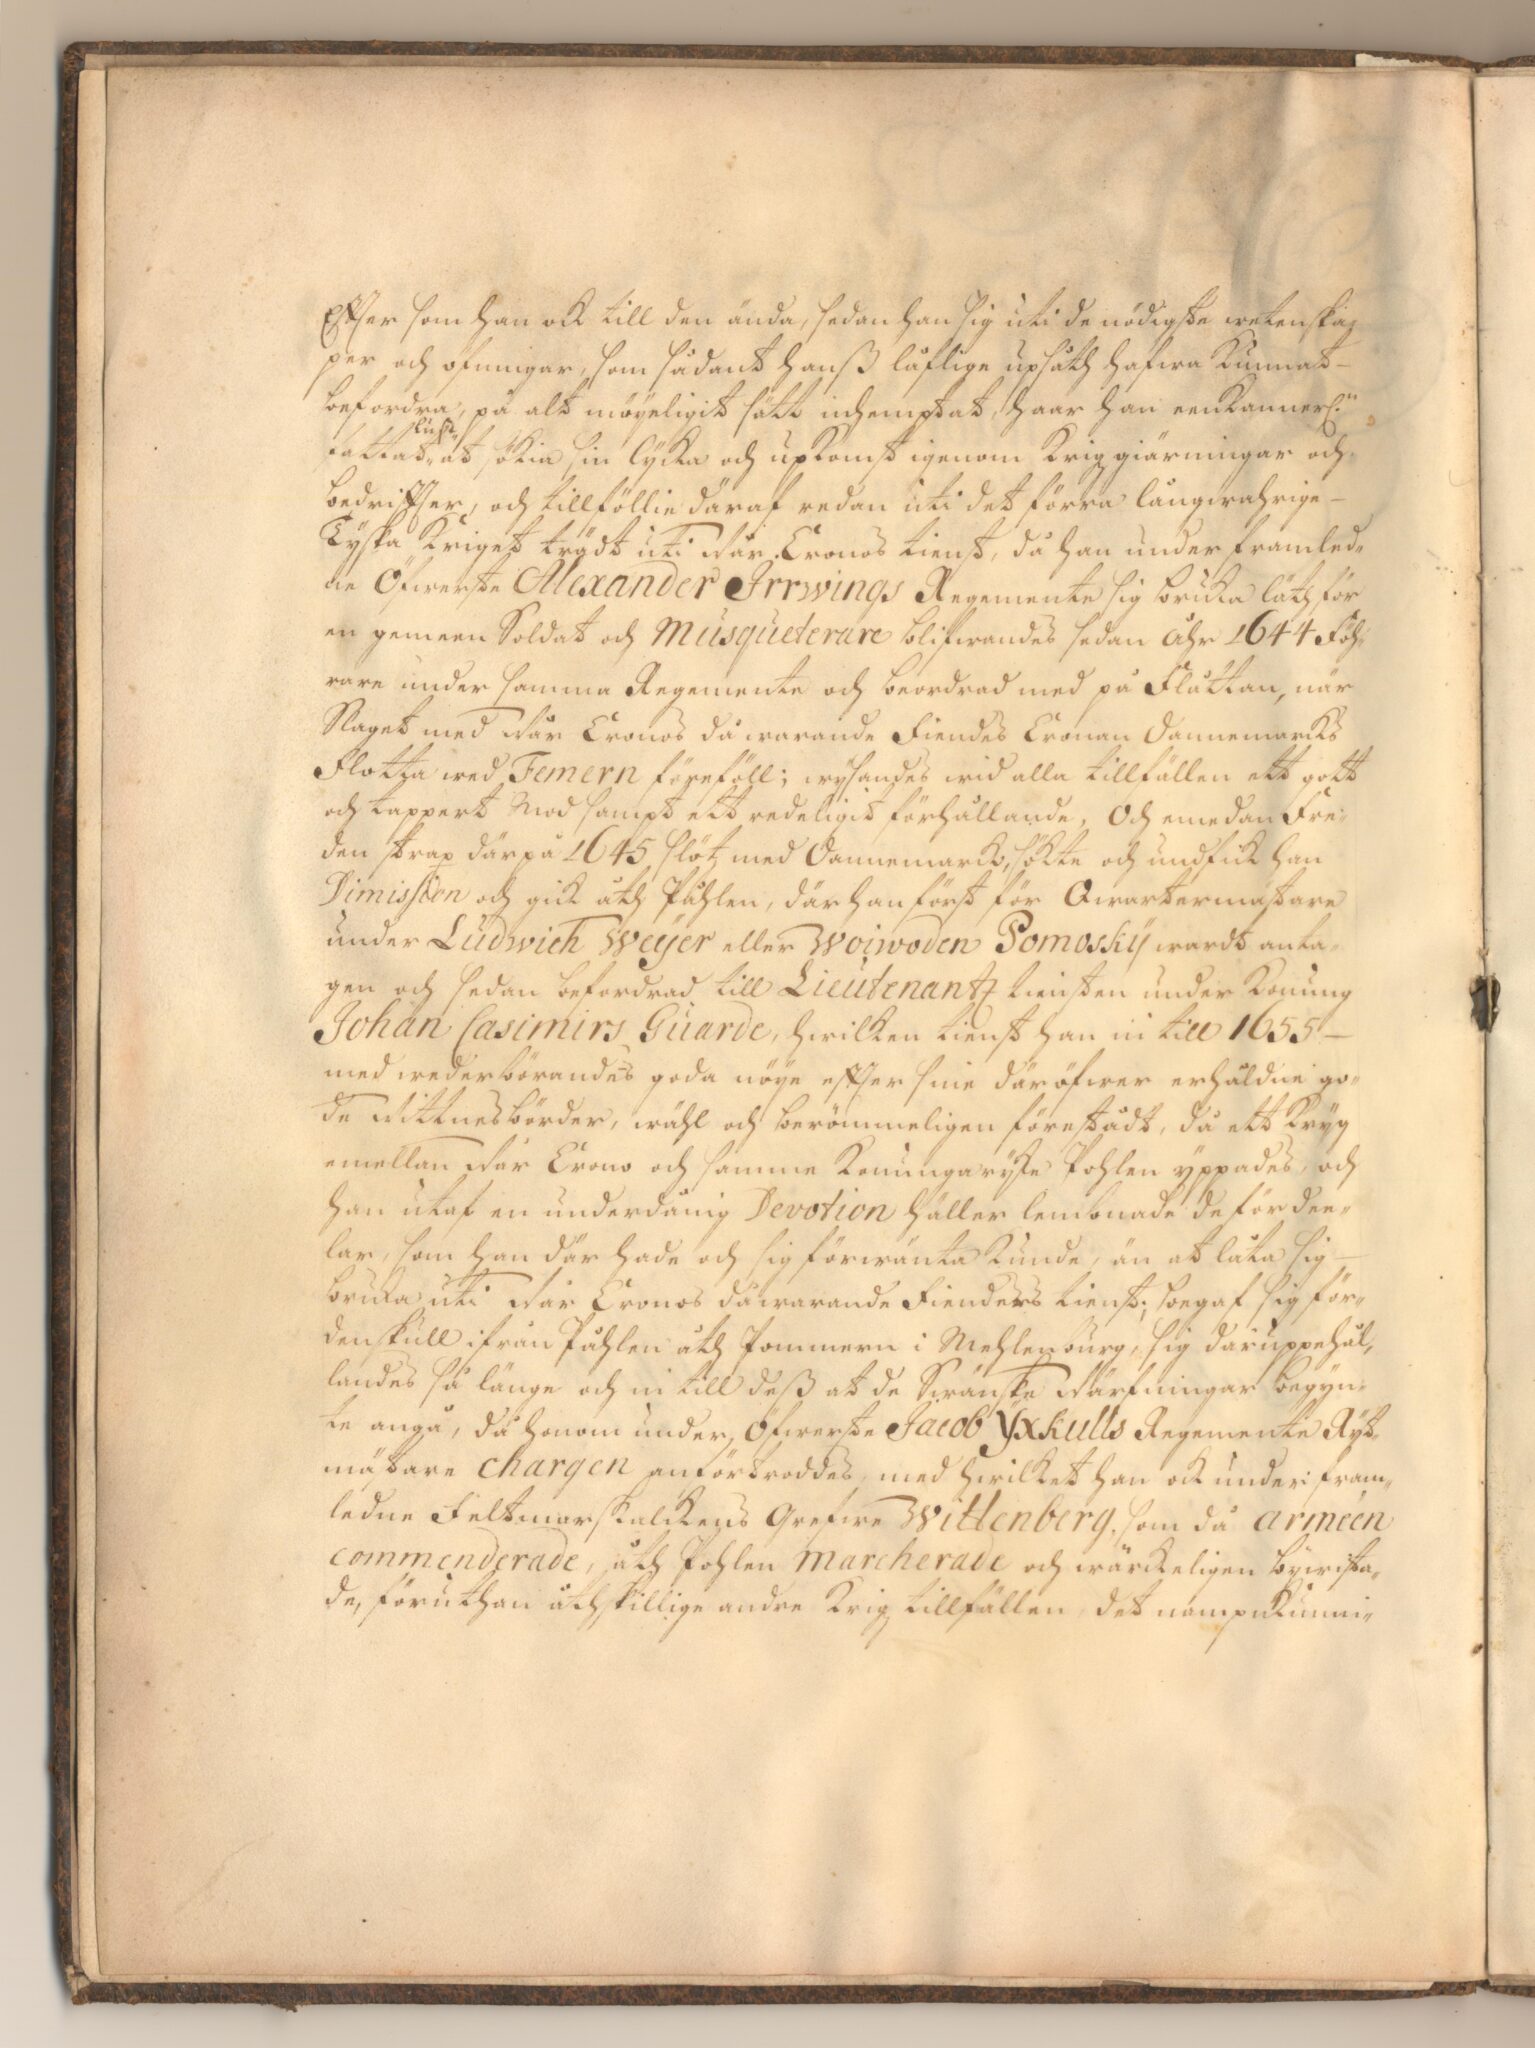 Effter som han ock till den ända, sedan han sig uti de nödigste wetenska-
per och öfningar, som sådant hanß låflige upsåth hafwa kunnat
befordra, på alt möyeligit sätt, haar han
lust
fattat at sökia sin lycka och upkomst igenom Krigzgiärningar och
bedriffter, och till föllie däraf redan uti det förra långwahrige
Tyska Kriget trädt uti Wår Cronos tienst, då han under framled-
ne Öfwerste Alexander Irrwings Regemente sig bruka låtz för
en gemeen Soldat och Musqueterare blifwandes sedan Åhr 1644 Föh-
rare under samma Regemente och beordrad med på Flåttan, när
Slaget med Wår Cronos då warande Fiendes Cronan Dannemarcks
Flotta wed Femern föreföll; wysandes wid alla tillfällen ett gott
och tappert Mod sampt ett redeligit förhållande, Och emedan Fre-
den strax därpå 1645 slötz med Dannemarck, sökte och undfick han
Dimission och gick åth Påhlen, där han först för Qwartermästare
under Ludwich Weyer eller Woiwoden Pomosky wardt anta-
gen och sedan befordrad till Lieutenantz tiensten under Konung
Johan Casimirs Guarde, hwilken tienst han in till 1655
med wederbörandes goda nöye effter sine däröfwer erhåldne go-
de Wittnesbörder, wähl och berömmeligen förestådt, då ett Kryg
emellan Wår Crono och samme Konungaryke Pohlen yppades, och
han utaf en underdånig Devotion häller lembnade de fördee-
lar, som han där hade och sig förwänta kunde, än at låta sig
bruka uti Wår Cronos då warande Fienders tienst; begaf sig för-
denskull ifrån Påhlen åth Pommern i Mechlenburg, sig där uppehål-
landes så länge och in till deß at de Swänske Wärfningar begyn-
te angå, då honom under Öfwerste Jacob Yxkulls Regemente Ryt-
mästare chargen anförtroddes, med hwilket han ock under fram-
ledne Feltmarskalckens Grefwe Wittenberg, som då armeen
commenderade, åth Pohlen marcherade och wärckeligen bywista-
de, föruthan åthskillige andre Krigz tillfällen, det nampnkunni-